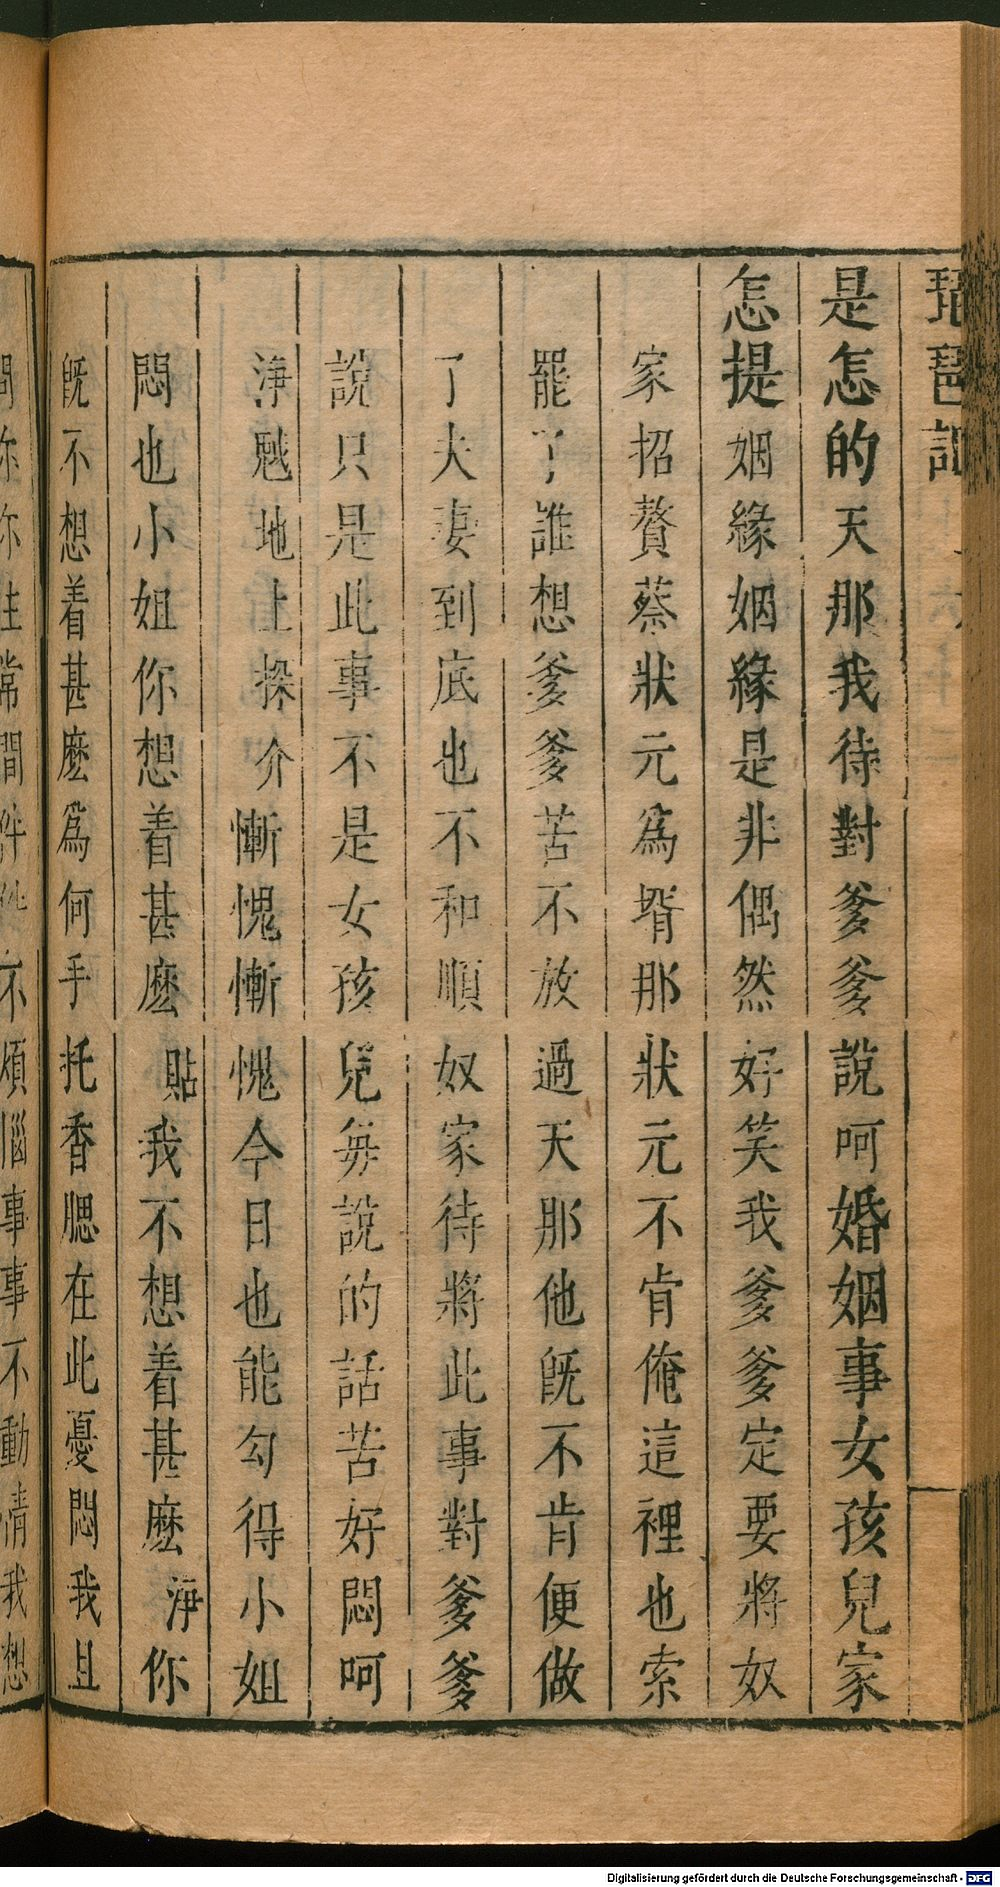 琵琶記
是怎的天那我待對爹爹說呵婚姻事女孩兒家
怎提姻緣姻緣是非偶然好笑我爹爹定要將奴
家招贅蔡狀元爲壻那狀元不肯俺這裡也索
罷了誰想爹爹苦不放過天那他旣不肯便做
了夫妻到底也不和順奴家待將此事對爹爹
說只是此事不是女孩兒每說的話苦好悶呵
淨魆地上探介慚愧慚愧今日也能勾得小姐
悶也小姐你想着甚麽貼我不想着甚麽淨你
旣不想着甚麽爲何手托香腮在此憂悶我且
問你你往常間件件不煩惱事事不動情我想
Digitalisierung gefördert durch die Deutsche Forschungsgemeinschaft - DFG